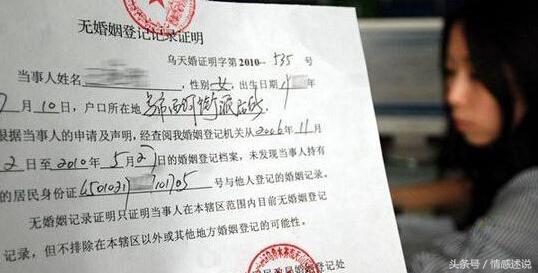 无婚姻登记记录证明
乌天婚证明字第2010-535号
当事人姓名 ,性别女,出生日期 年
月10日,户口所在地
根据当事人的申请及声明,经查阅我婚姻登记机关从2006年11月
2日至2010年5月27日的婚姻登记档案,未发现当事人持有
的居民身份证 号与他人登记的婚姻记录。
无婚姻记录证明只证明当事人在本辖区范围内目前无婚姻登记
记录,但不排除在本辖区以外或其他地方婚姻登记的可能性。
婚姻登记处
头条号 / 情感述说